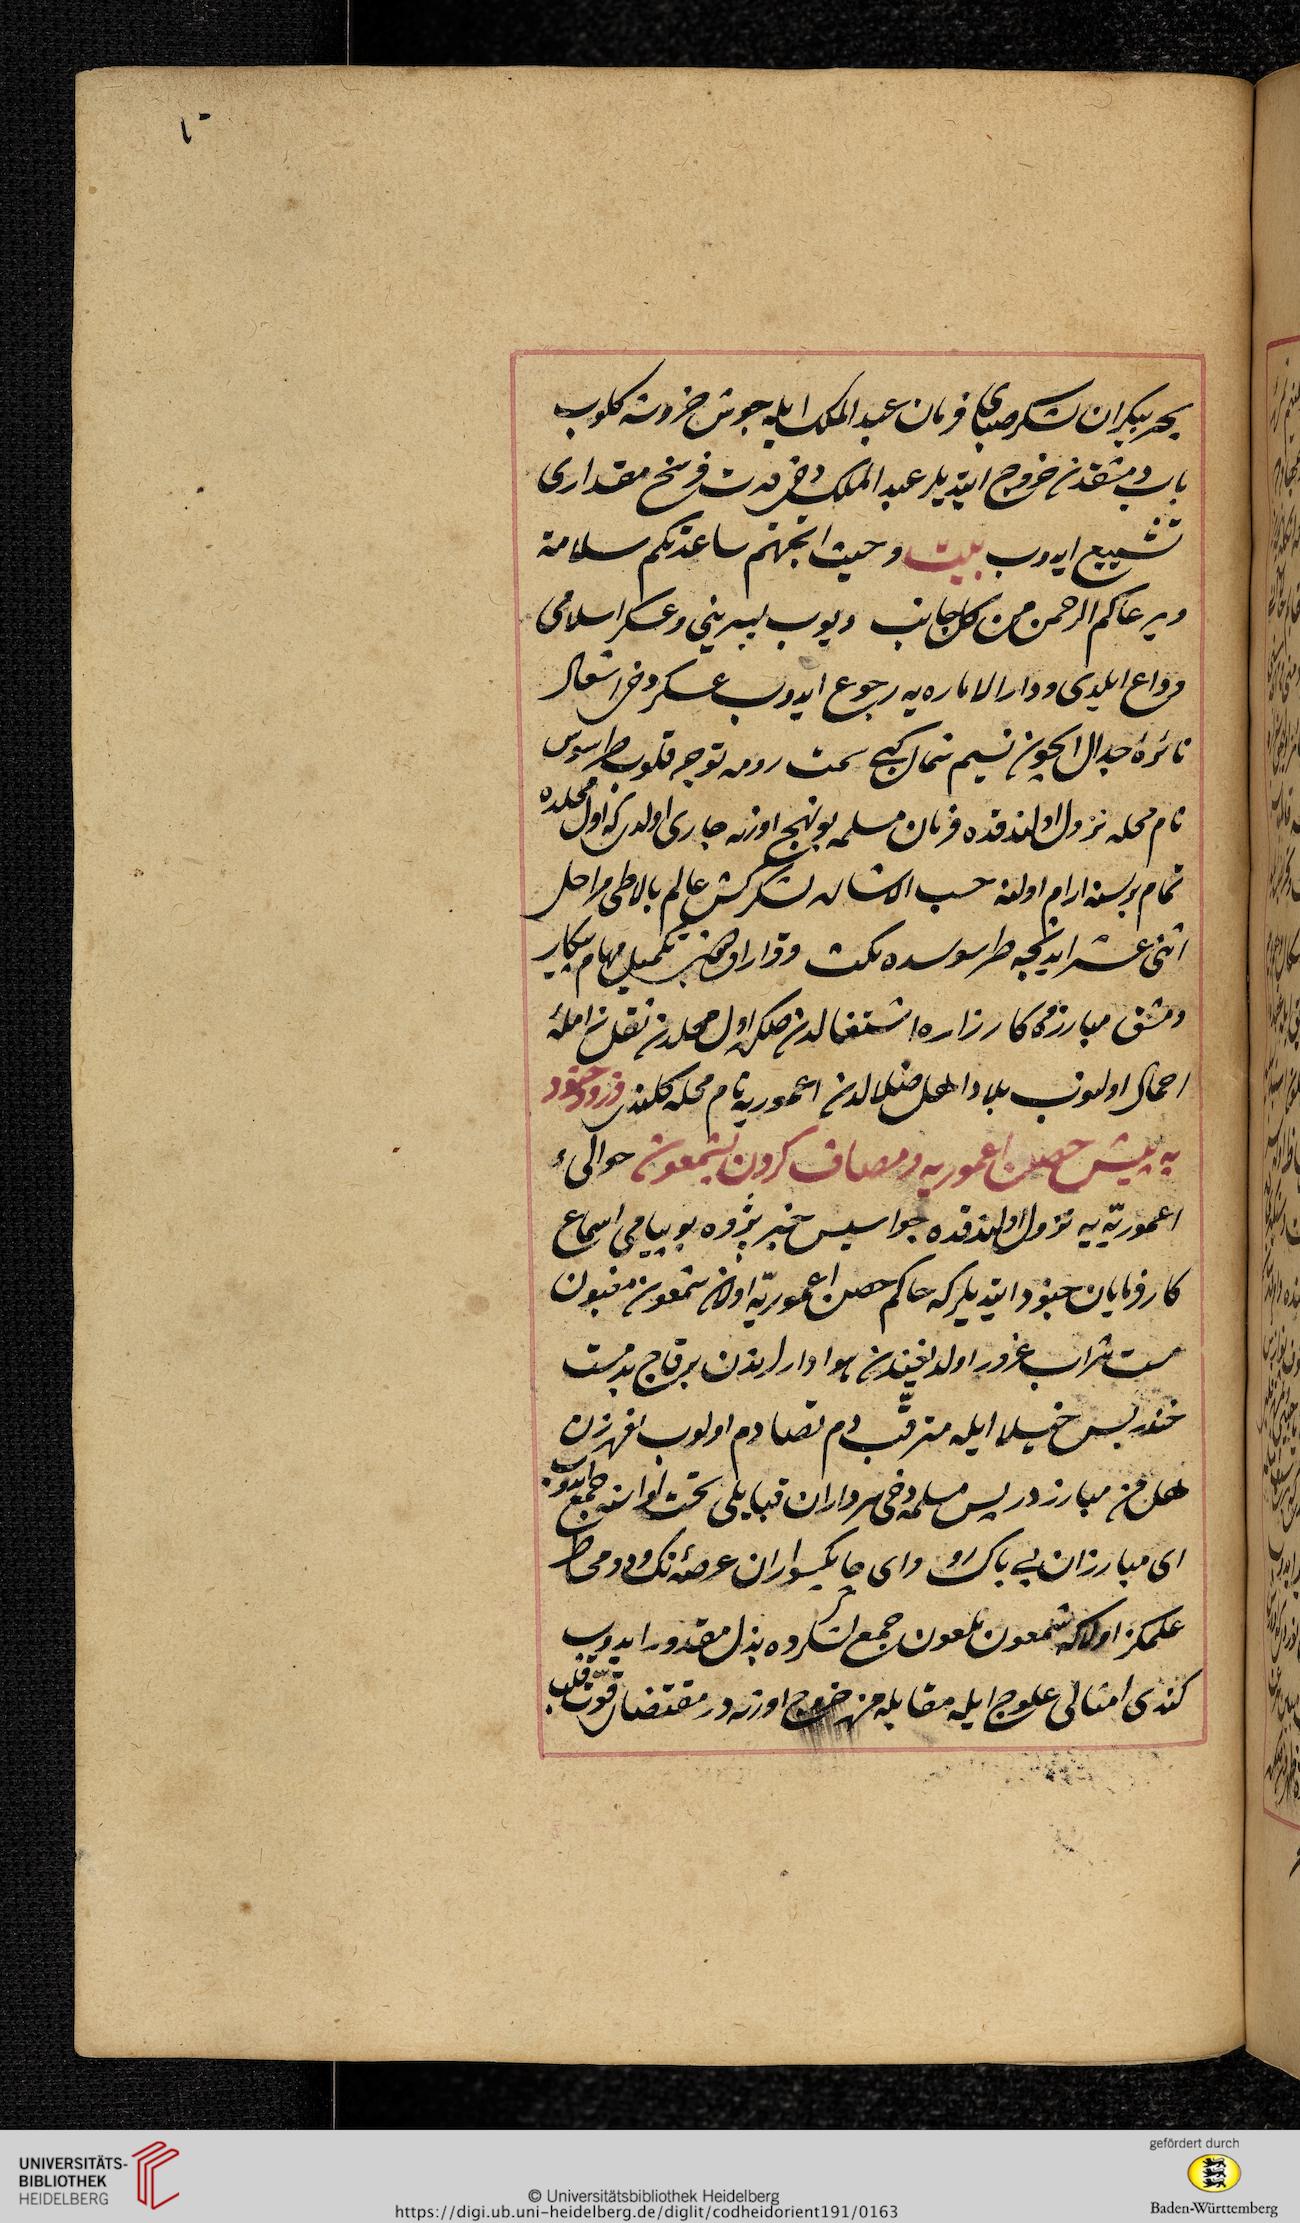 بحر بیکران لشکر صبای فرمان عبد الملک ایله جوش خروشه کلوب
باب دمشقدن خروج ایتدیلر عبد الملک دخی فرسخ مقداری
تشییع ایدوب بیت وحیث اتجهتم ساعدتکم سلامة
ویرعاکم الرحمن من کل جانب دیوب پسرینی و عسکر اسلامی
وداع ایلدی و دار الاماره یه رجوع ایدوب عسکر دخی اشعال
نائرۀ جدال ایچون نسیم شمال کبی سمت رومه توجه قلوب طرسوس
نام محله نزول اولندقده فرمان مسلمه بو نهج اوزره جاری اولدی که اول محلده
تمام آرام اولنه حسب الاشاره لشکرکش عالم بالا طی مراحل
اثنی عشر ایدنجه طرسوسده مکث و قرار تکمیل مهام پیکار
دمشق مبارزمی کارزاره اشتغالدن صکره اول محلدن نقل
احمال اولنوب بلاد اهل ضلالدن اعموریه نام محله کلندی فرود جنود
به پیش حصن اعموریه و مصاف کردن بشمعون حوالئ
اعموریّه یه نزول اولندقده جواسیس خبر پژوه بو پیامی اسماع
کارفرمایان جنود ایتدیلر که حاکم حصن اعموریّه اولان شمعون مغبون
مست شراب غرور اولدیغندن هوادارلرندن بر قاچ بدمست
خندریس خیلا ایله مترقّب دم تصادم اولوب
هل من مبارز در پس مسلمه دخی سرداران قبایلی تحت لواسنه جمع ایدوب
ای مبارزان بی باک و ای چابکسواران عرصۀ تک و دو محاط
علمکز اولاکه شمعون ملعون جمع لشکرده بذل مقدور ایدوب
کندی امثالی علوج ایله مقابله مزه خروج اوزره در مقتضای قوّت قلب
UNIVERSITÄTS-
BIBLIOTHEK
HEIDELBERG
© Universitätsbibliothek Heidelberg
https://digi.ub.uni-heidelberg.de/diglit/codheidorient191/0163
gefördert durch
Baden-Württemberg